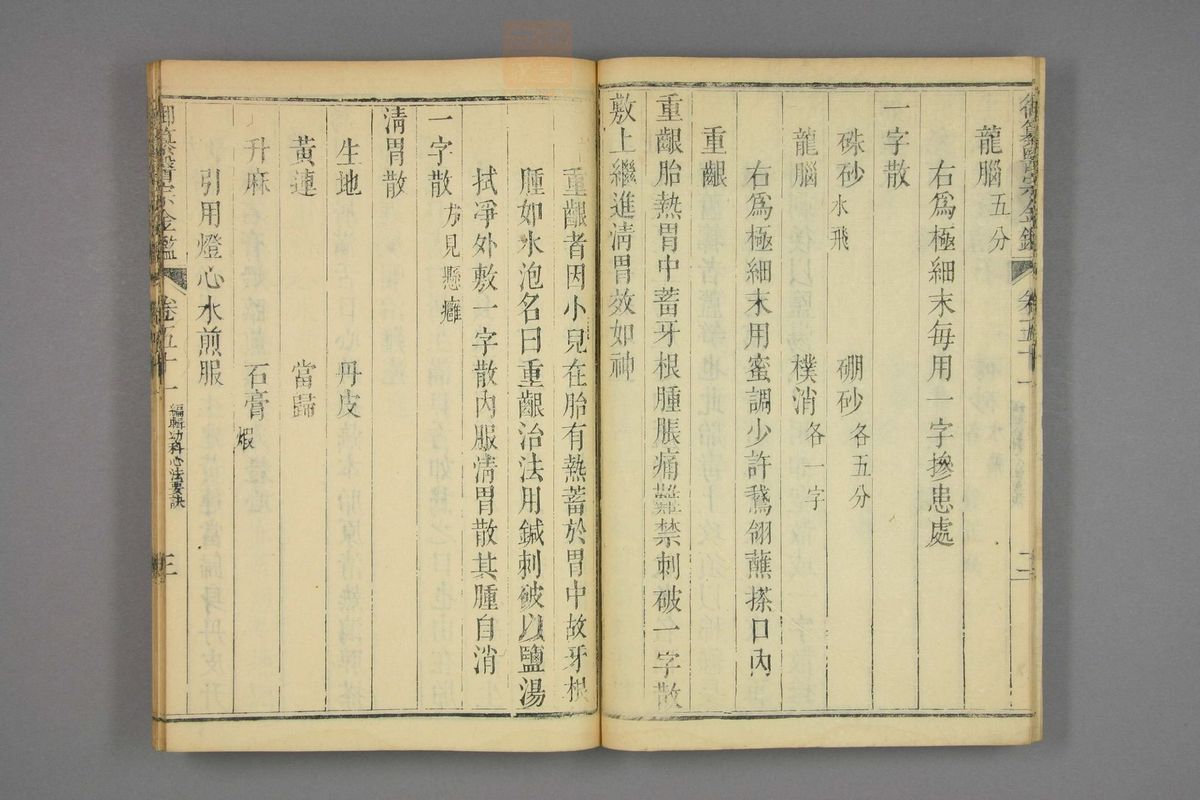 御纂醫宗金鑑 卷五十一 二
龍腦五分
右爲極細末毎用一字摻患處
一字散
硃砂水飛 硼砂各五分
龍腦 樸消各一字
右爲極細末用蜜調少許鵞翎蘸搽口內
重齦
重齦胎熱胃中蓄牙根腫脹痛難禁刺破一字散
敷上繼進淸胃效如神
重齦者因小兒在胎有熱蓄於胃中故牙根
腫如水泡名曰重齦治法用鍼刺破以鹽湯
拭淨外敷一字散內服淸胃散其腫自消
一字散方見懸癰
淸胃散
生地 丹皮
黃連 當歸
升麻 石膏煆
引用燈心水煎服
御纂醫宗金鑑 卷五十一 編輯幼科心法要訣 三